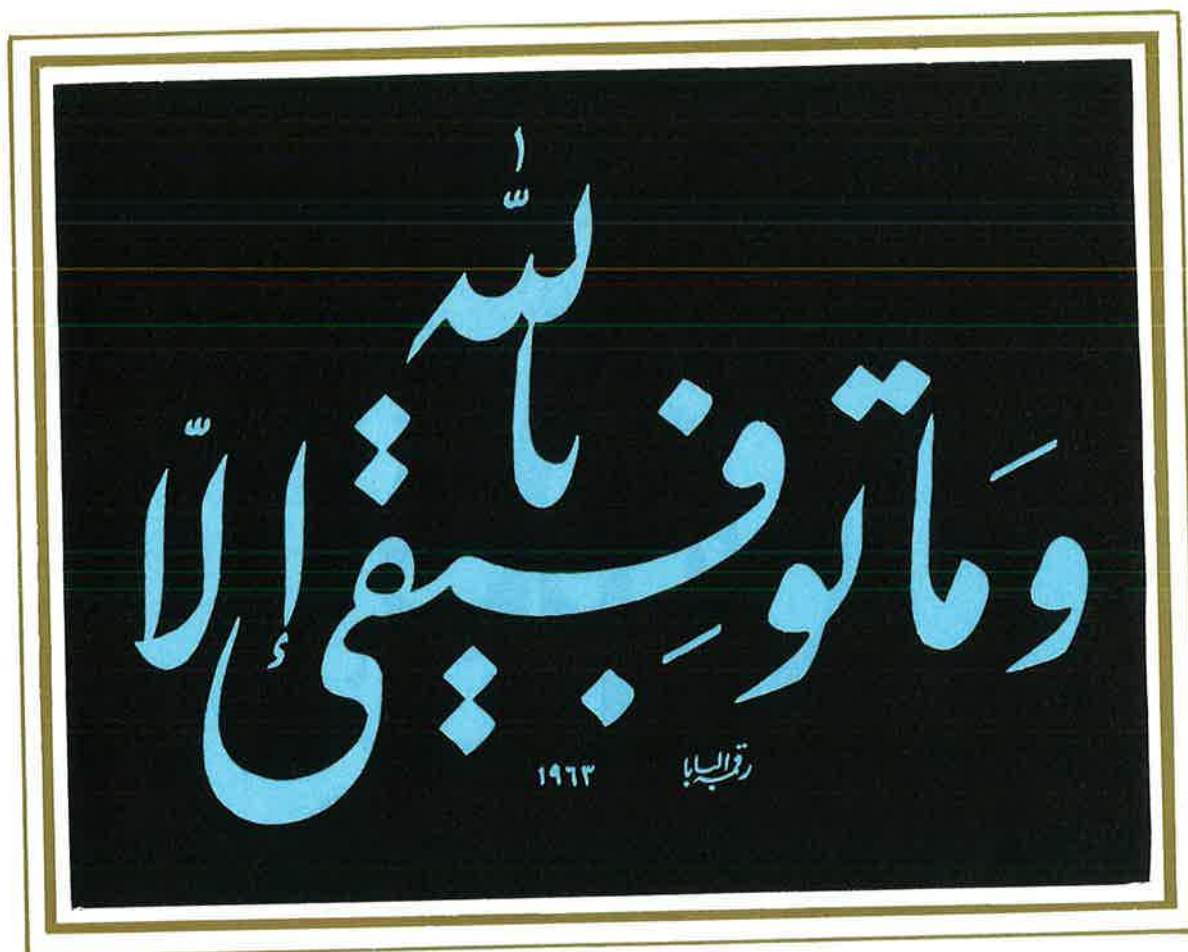 وَما توفِيقى إلّا بالله
رقمه البابا
١٩٦٣